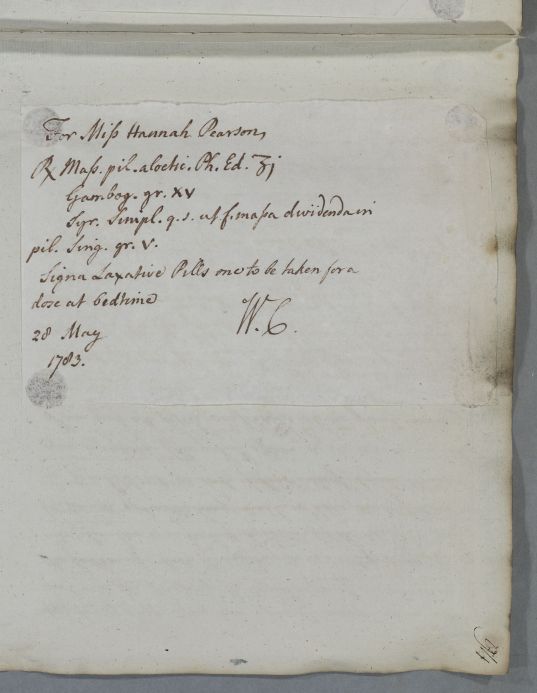 For Miſs Hannah Pearson,
℞ Maſs. pil. aloetic. Ph. Ed. ʒj
Gambog. gr. XV
Syr. Simpl. q. s. ut f. maſsa dividenda in
pil. Sing. gr. V.
Signa Laxative Pills one to be taken for a
dose at bedtime
W. C.
28 May
1783.